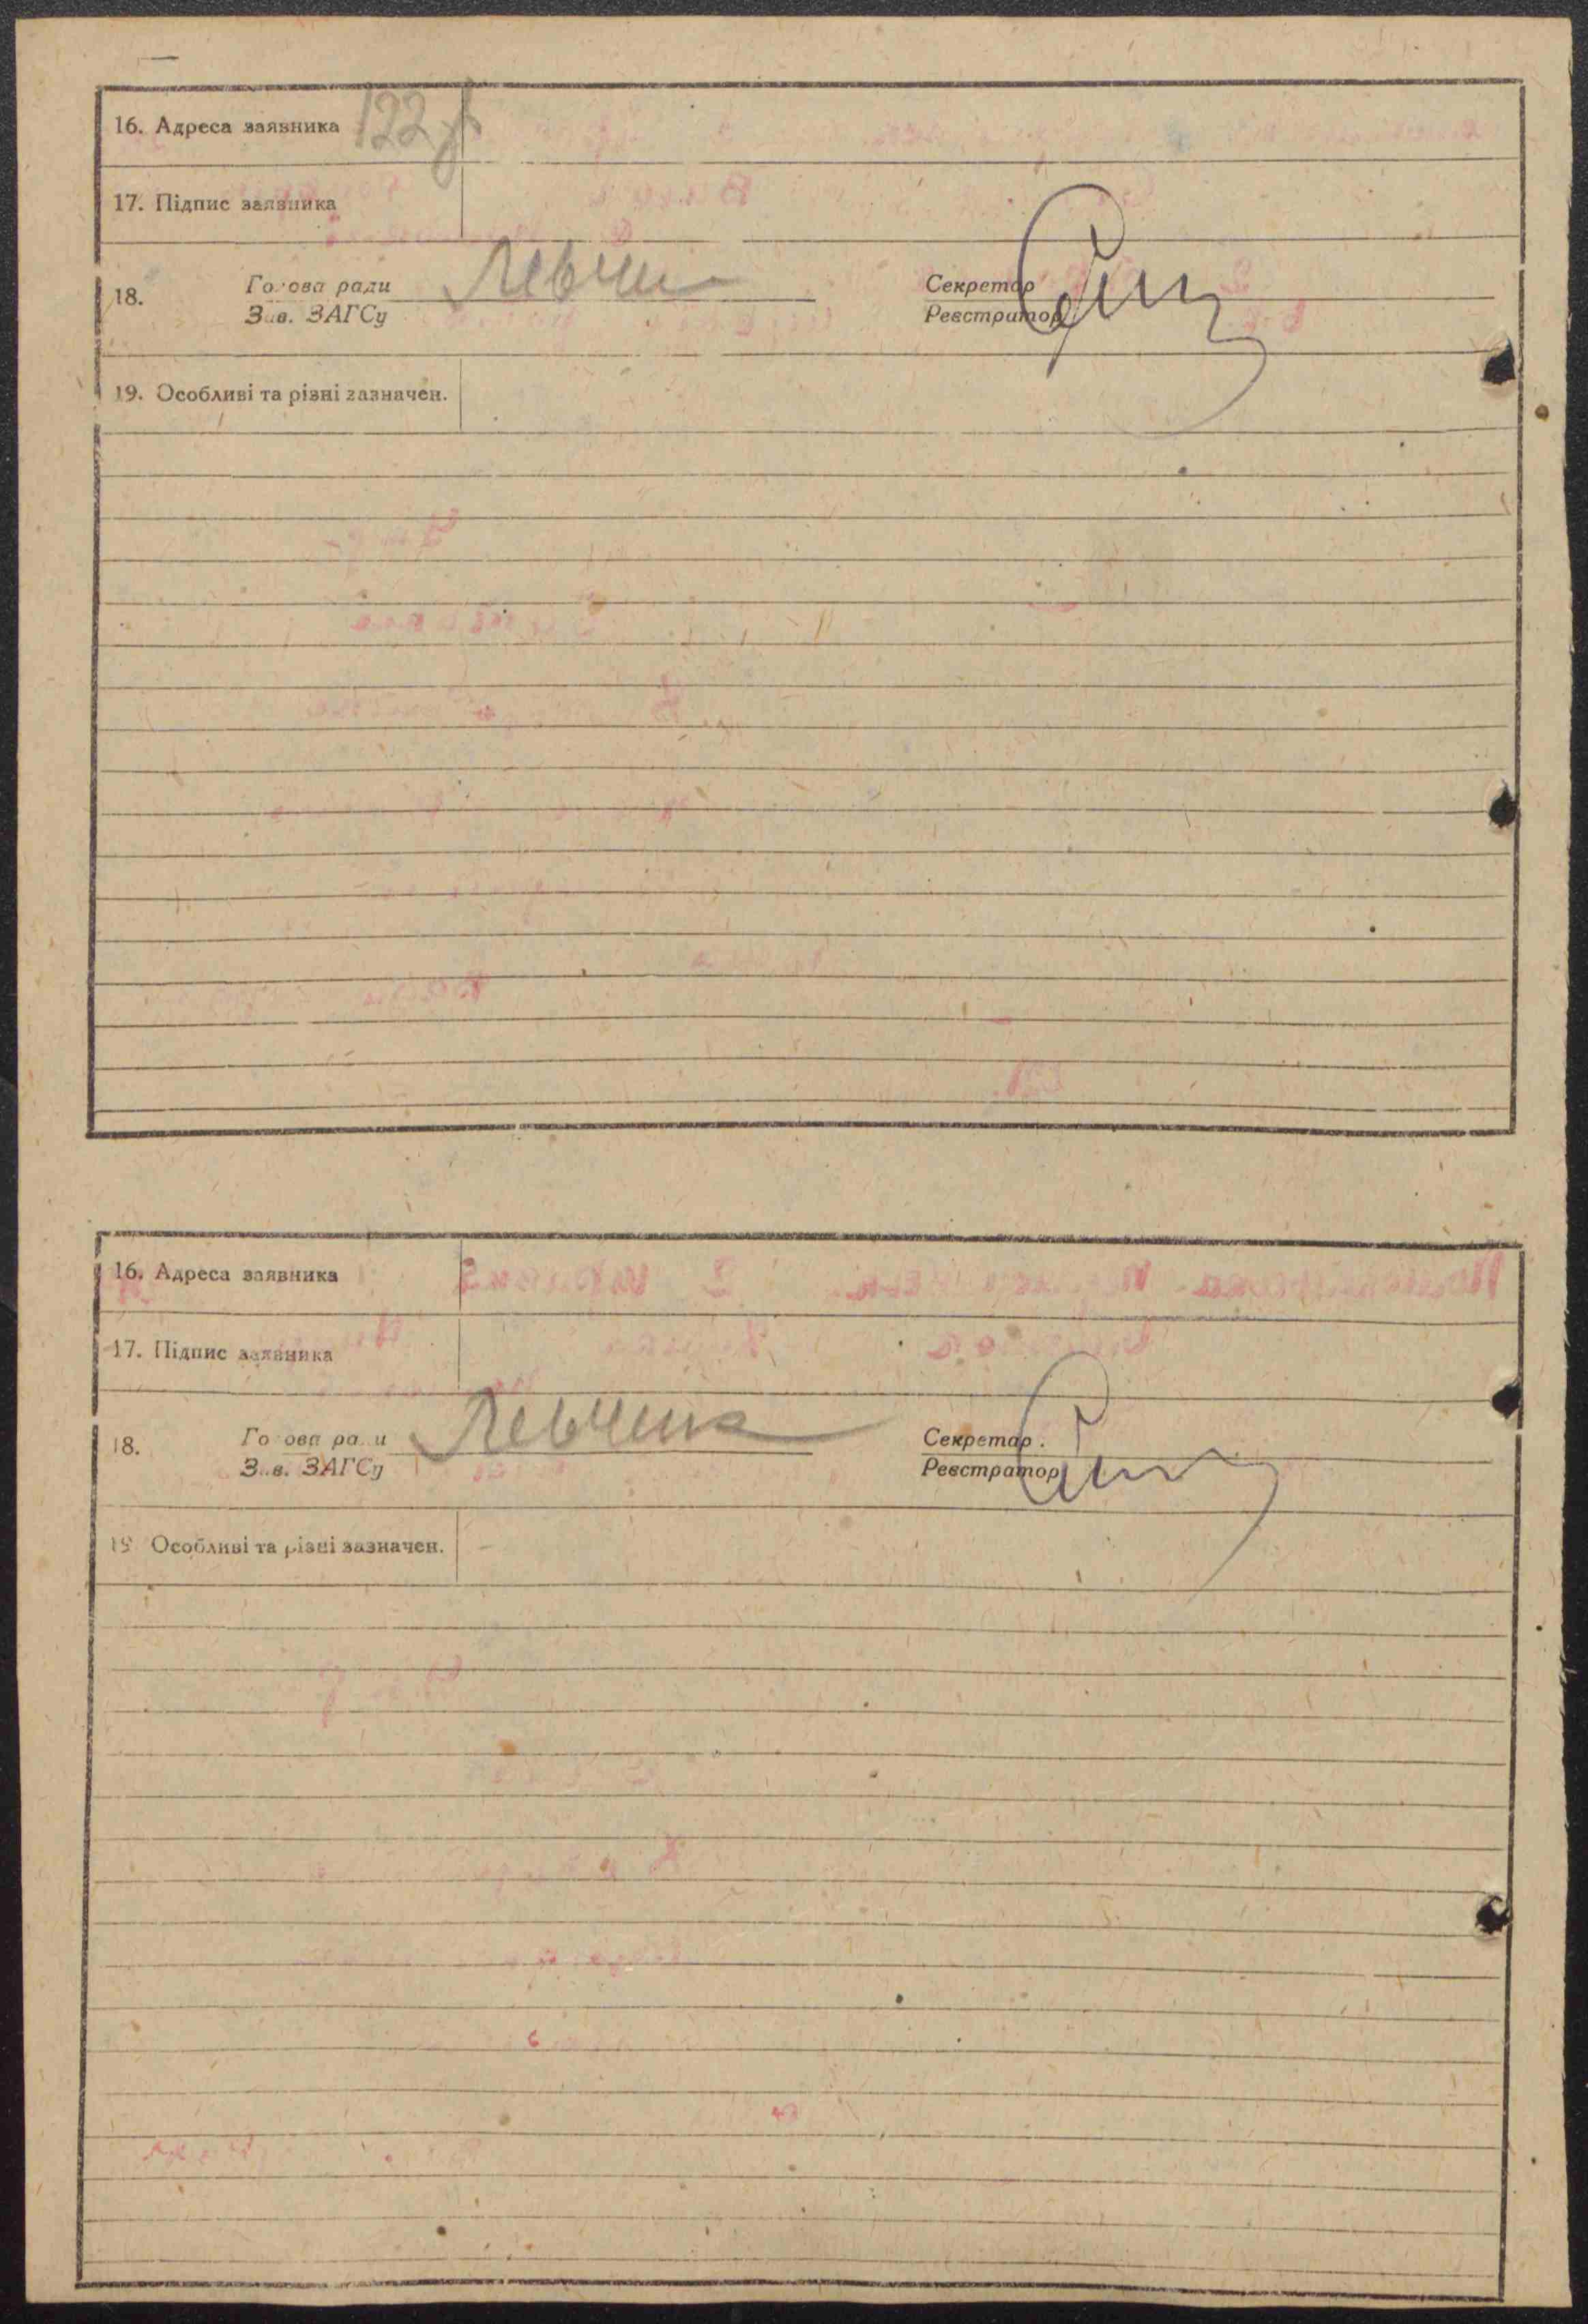 16. Адреса заявника 122
17. Підпис заявника
18. Голова ради Левчен Секретар
Зав. ЗАГСу Реєстратор
19. Особливі та різні зазначен.
16. Адреса заявника
17. Підпис заявника
18. Голова ради Левченко Секретар
Зав. ЗАГСу Реєстратор
19 Особливі та різні зазначен.